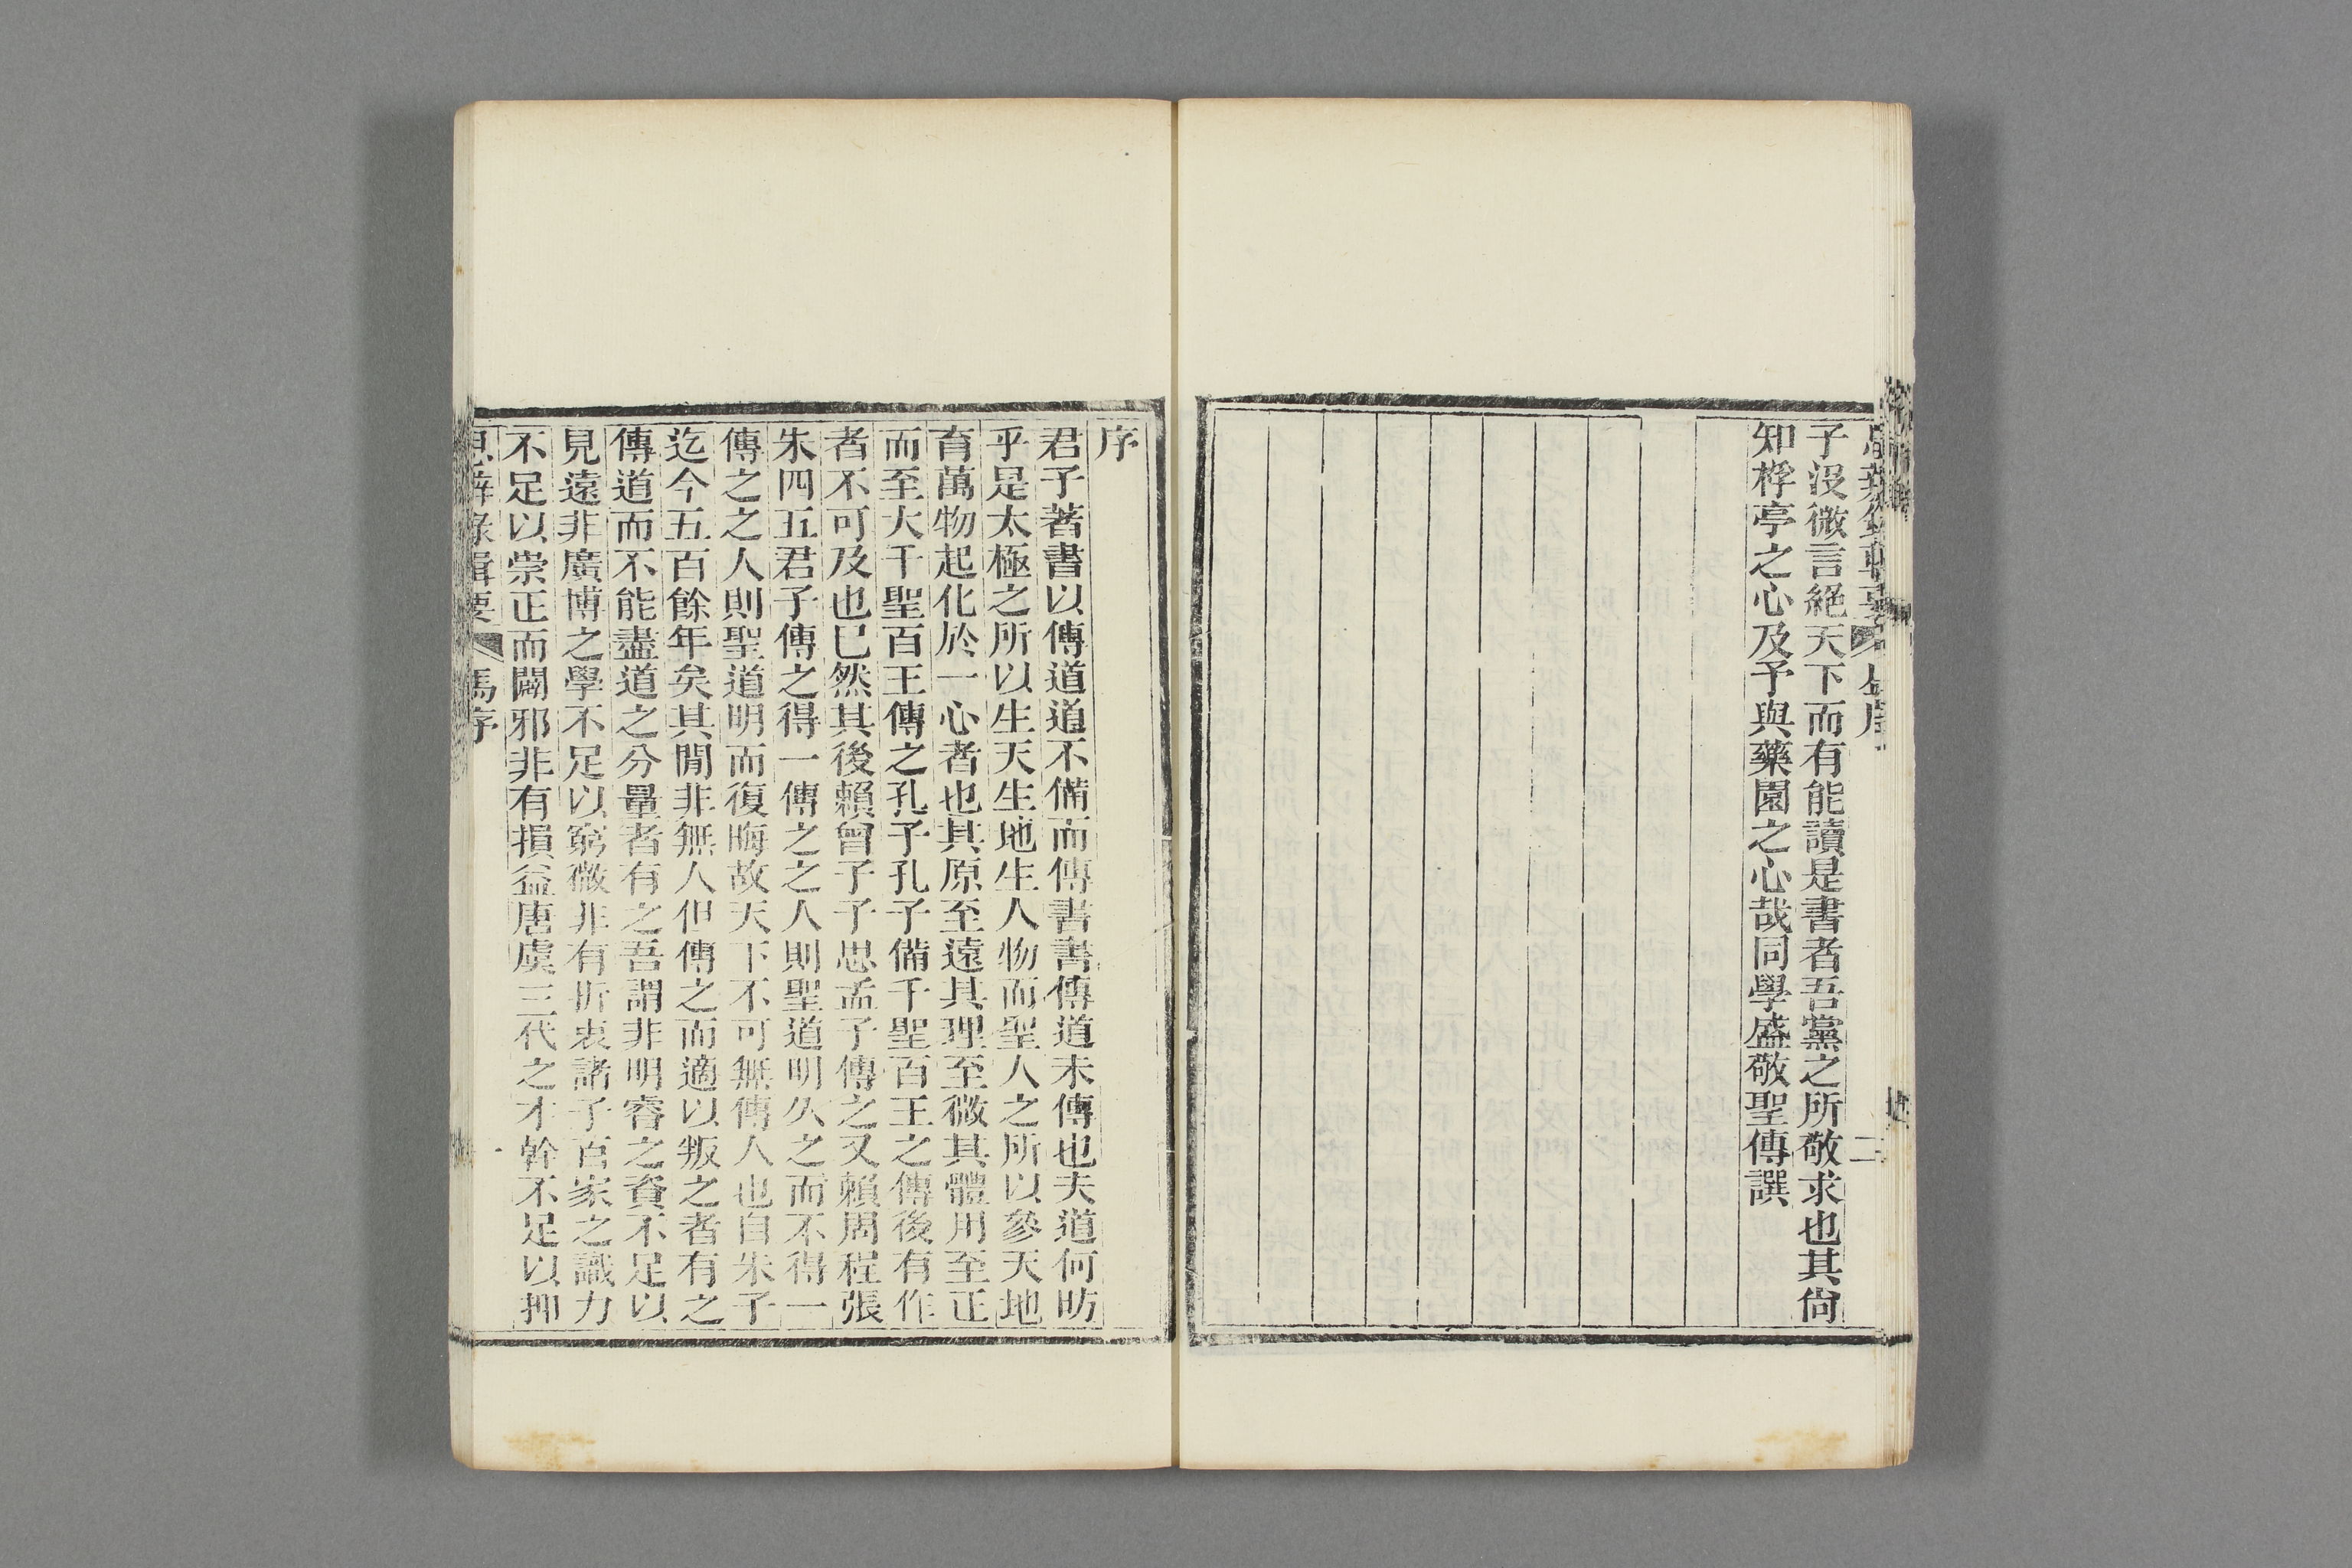 子沒微言絕天下而有能讀是書者吾黨之所敬求也其尙
知桴亭之心及予與藥園之心哉同學盛敬聖傳譔
序
君子著書以傳道道不備而傳書書傳道未傳也夫道何昉
乎是太極之所以生天生地生人物而聖人之所以參天地
育萬物起化於一心者也其原至遠其理至微其體用至正
而至大千聖百王傳之孔子孔子備千聖百王之傳後有作
者不可及也已然其後賴曾子子思孟子傳之又賴周程張
朱四五君子傳之得一傳之之人則聖道明久之而不得一
傳之之人則聖道明而復晦故天下不可無傳人也自朱子
迄今五百餘年矣其閒非無人但傳之而適以叛之者有之
傳道而不能盡道之分量者有之吾謂非明睿之資不足以
見遠非廣博之學不足以窮微非有折衷諸子百家之識力
不足以崇正而闢邪非有損益唐虞三代之才幹不足以抑
思辨錄輯要 馮序 一